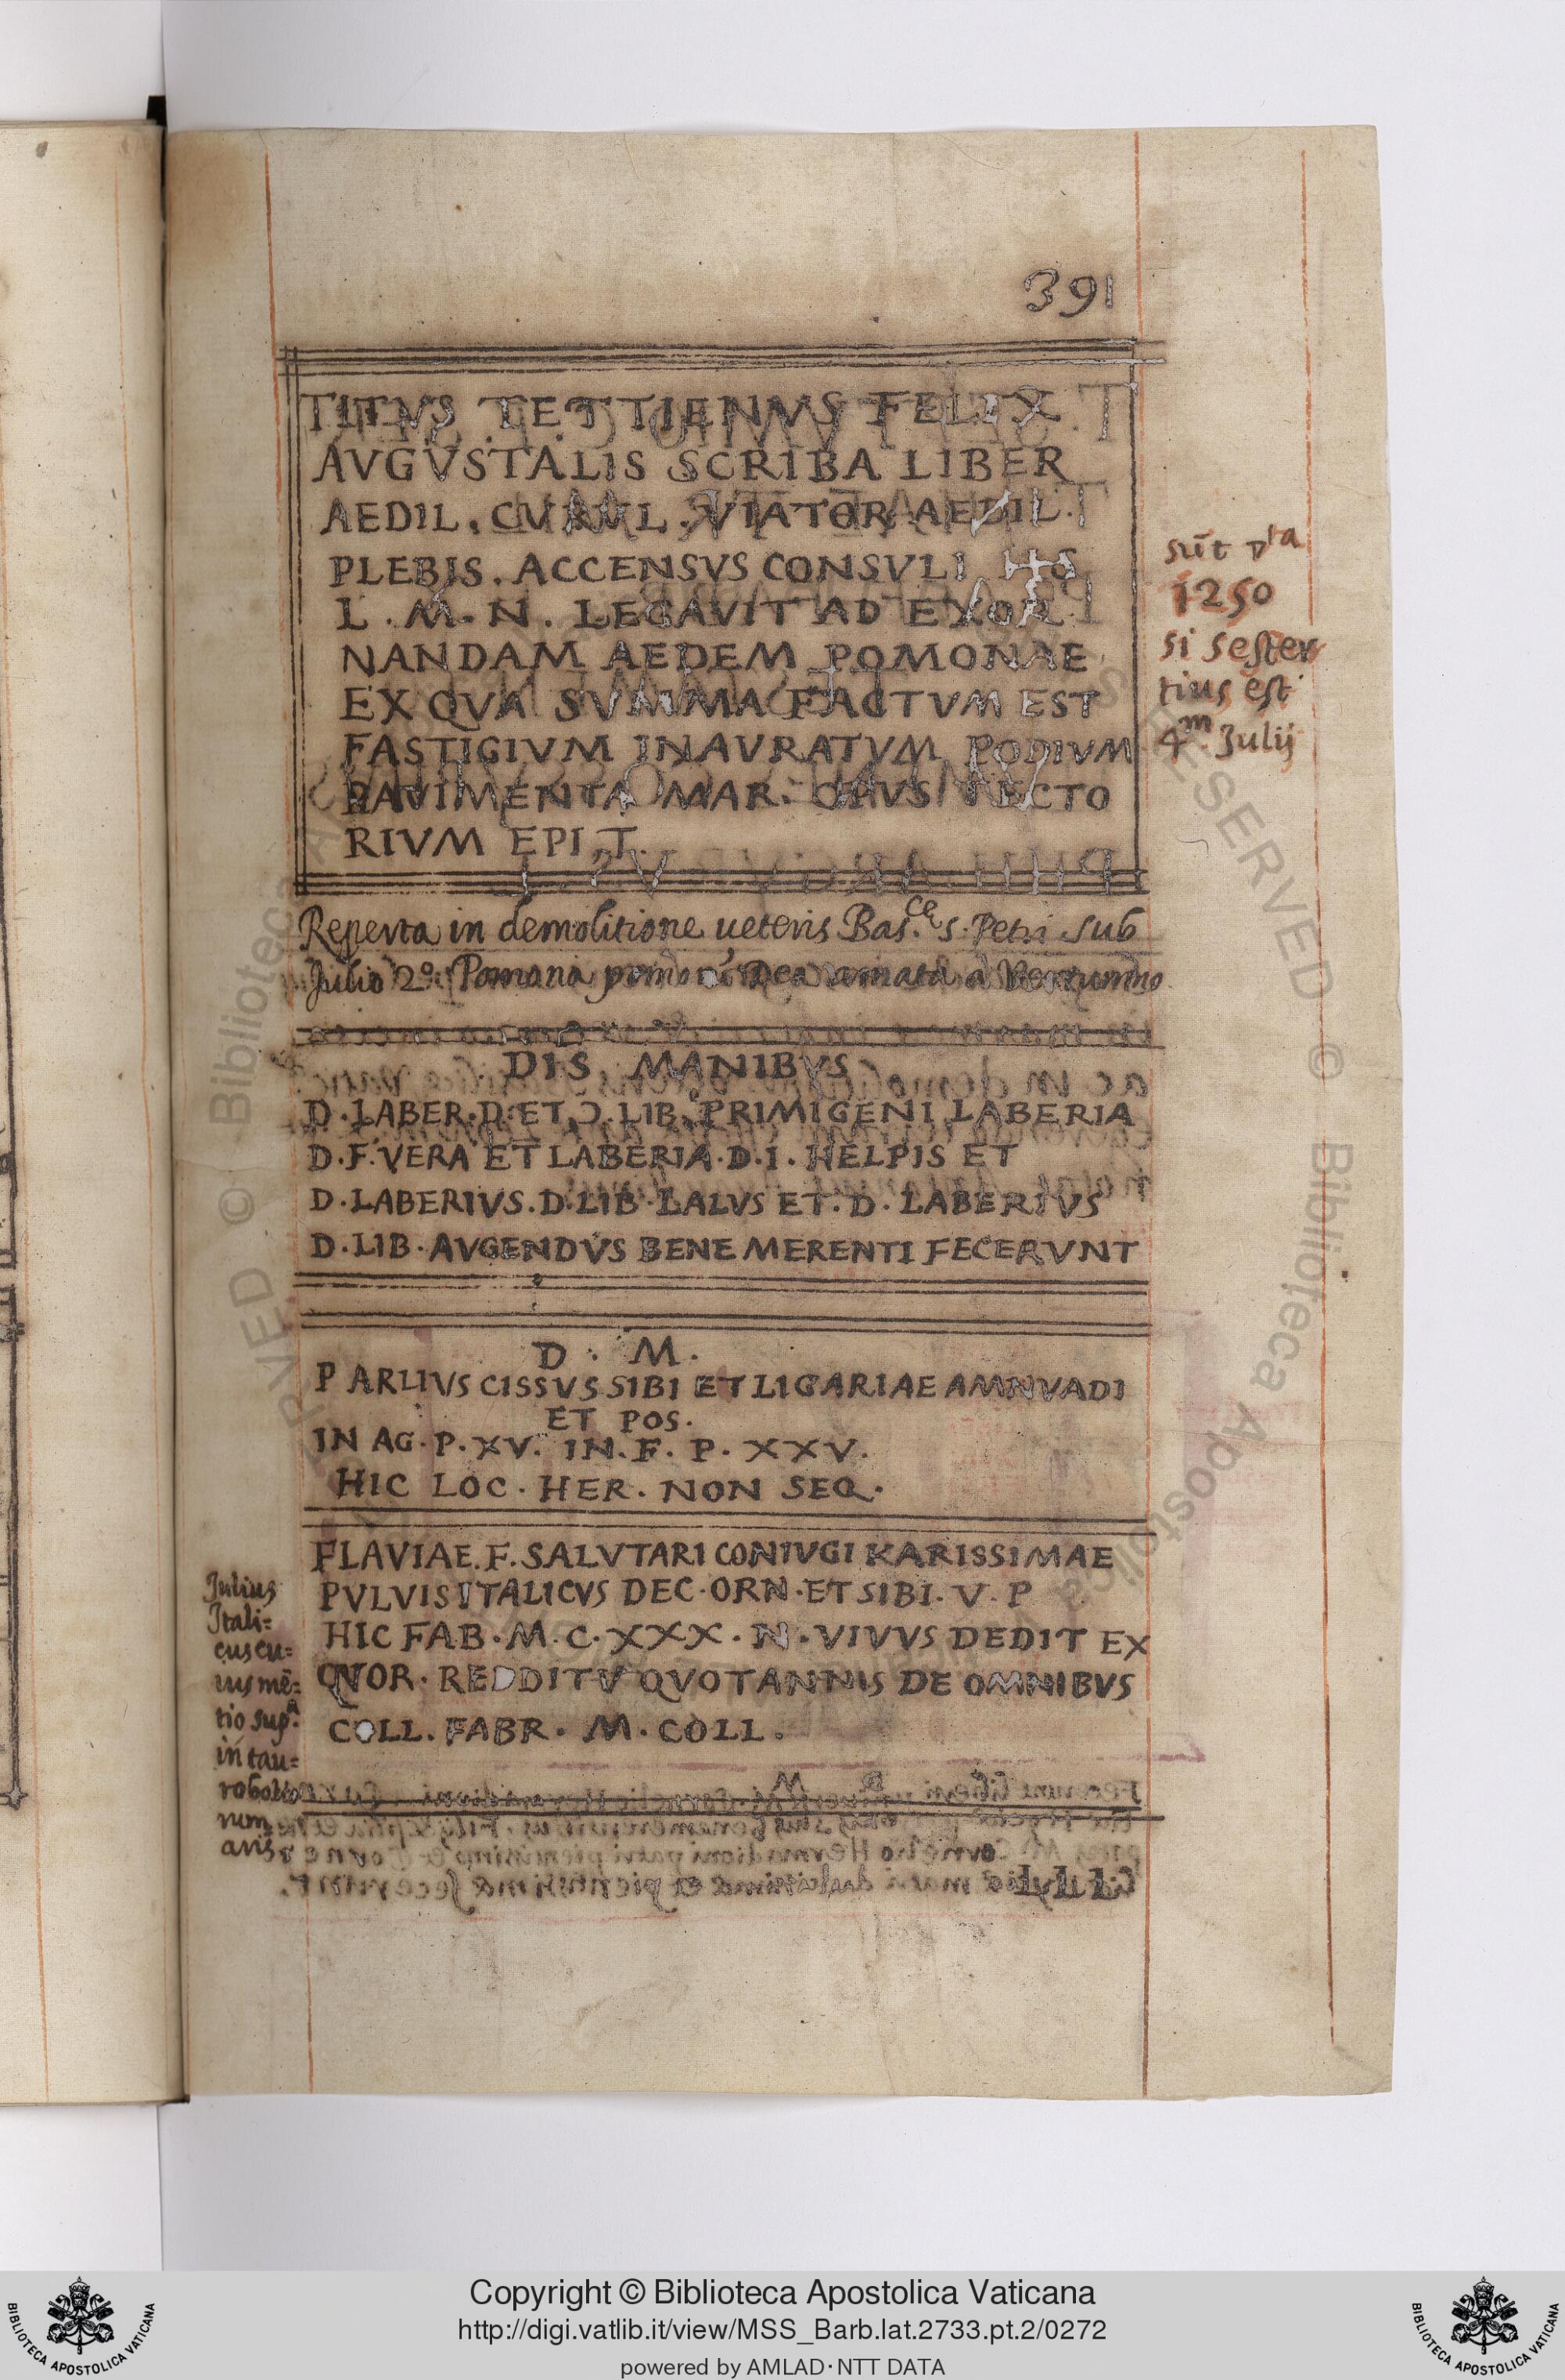 391
TITVS TETTIENVS FELIX
AVGVSTALIS SCRIBA LIBER
AEDIL. CVRVL. VIATOR AEDIL.
PLEBIS. ACCENSVS CONSVLI HS
L. M. N. LEGAVIT AD EXOR
NANDAM AEDEM POMONAE
EX QVA SVMMA FACTVM EST
FASTIGIVM INAVRATVM PODIVM
PAVIMENTA MAR. OPVS TECTO
RIVM EPI,T.
sūt vta
1250
si sester
tius est
4m Julij
Reperta in demolitione ueteris Bas.ce s. Petri sub
Julio 2o. Pomana Dea amata a Vertumno
DIS MANIBVS
D. LABER. D. ET Ɔ. LIB. PRIMIGENI LABERIA
D. F. VERA ET LABERIA. D. I. HELPIS ET
D. LABERIVS. D. LIB. LALVS ET. D. LABERIVS
D. LIB. AVGENDVS BENE MERENTI FECERVNT
D. M.
P ARLIVS CISSVS SIBI ET LIGARIAE AMNVADI
ET POS.
IN AG. P. XV. IN. F. P. XXV.
HIC LOC. HER. NON SEQ.
FLAVIAE. F. SALVTARI CONIVGI KARISSIMAE
PVLVIS ITALICVS DEC. ORN. ET SIBI. V. P
HIC FAB. M. C. XXX. N. VIVVS DEDIT EX
QVOR. REDDITV QVOTANNIS DE OMNIBVS
COLL. FABR. M. COLL.
Julius
Itali=
cus cu=
ius mē=
tio supa.
in tau=
robolio
rum
aris
Copyright © Biblioteca Apostolica Vaticana
http://digi.vatlib.it/view/MSS_Barb.lat.2733.pt.2/0272
powered by AMLAD·NTT DATA
BIBLIOTECA APOSTOLICA VATICANA
BIBLIOTECA APOSTOLICA VATICANA